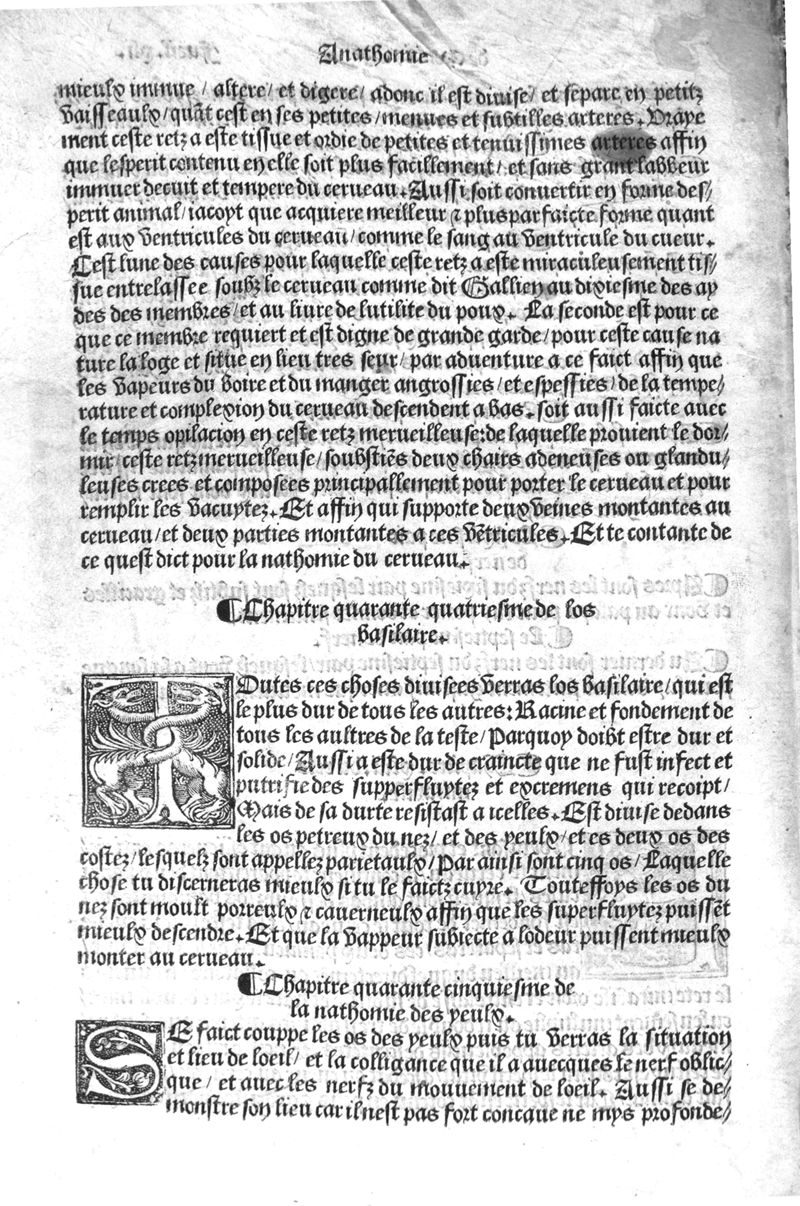 Anathomie
mieulx immue / altere / et digere / adonc il est divise / et separe en petitz
vaisseaulx / quãt cest en ses petites / menues et subtilles arteres. Vraye
ment ceste retz a este tissue et ordie de petites et tenuissimes arteres affin
que lesperit contenu en elle soit plus facillement / et sans grant labbeur
immuer decuit et tempere du cerueau. Aussi soit conuertir en forme des//
perit animal / iacoyt que acquiere meilleur ⁊ plus parfaicte forme quant
est aux ventricules du cerueau / comme le sang au ventricule du cueur.
Cest lune des causes pour laquelle ceste retz a este miraculeusement tis//
sue entrelassee soubz le cerueau comme dit Gallien au dixiesme des ay
des des membres / et au liure de lutilite du poux. La seconde est pour ce
que ce membre requiert et est digne de grande garde / pour ceste cause na
ture la loge et situe en lieu tres seur / par aduenture a ce faict affin que
les vapeurs du boire et du manger angrossies / et espessies / de la tempe//
rature et complexion du cerueau descendent a bas. soit aussi faicte auec
le temps opilacion en ceste retz merueilleuse: de laquelle prouient le dor//
mir / ceste retz merueilleuse / soubstiẽs deux chairs adeneuses ou glandu//
leuses crees et composees principallement pour porter le cerueau et pour
remplir les vacuytez. Et affin qui supporte deux veines montantes au
cerueau / et deux parties montantes a ces vẽtricules. Et te contante de
ce quest dict pour la nathomie du cerueau.
¶ Chapitre quarante quatriesme de los
basilaire.
TOutes ces choses diuisees verras los basilaire / qui est
le plus dur de tous les autres: Racine et fondement de
tous les aultres de la teste / Parquoy doibt estre dur et
solide / Aussi a este dur de craincte que ne fust infect et
putrifie des supperfluytez et excremens qui recoipt /
Mais de sa durte resistast a icelles. Est diuise dedans
les os petreux du nez / et des yeulx / et es deux os des
costez / lesquelz sont appellez parietaulx / Par ainsi sont cinq os / Laquelle
chose tu discerneras mieulx si tu le faictz cuyre. Touteffoys les os du
nez sont moult porreulx ⁊ cauerneulx affin que les superfluytez puissẽt
mieulx descendre. Et que la vappeur subiecte a lodeur puissent mieulx
monter au cerueau.
¶ Chapitre quarante cinquiesme de
la nathomie des yeulx.
SE faict couppe les os des yeulx puis tu verras la situation
et lieu de loeil / et la colligance que il a auecques le nerf oblic//
que / et auec les nerfz du mouuement de loeil. Aussi se de//
monstre son lieu car il nest pas fort concaue ne mys profonde//